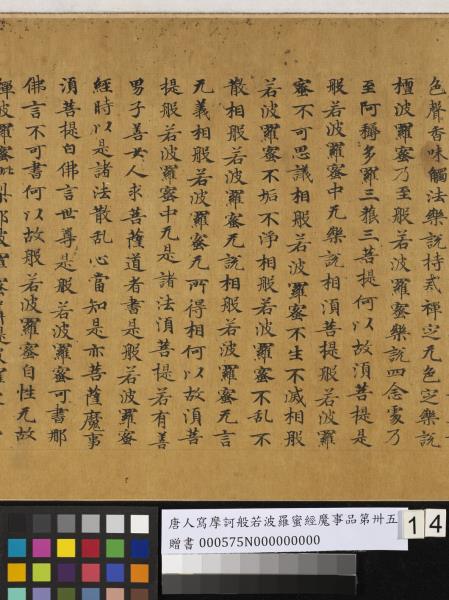 色聲香味觸法樂說持戒禪定无色定樂說
檀波羅蜜乃至般若波羅蜜樂說四念處乃
至阿耨多羅三藐三菩提何以故須菩提是
般若波羅蜜中无樂說相須菩提般若波羅
蜜不可思議相般若波羅蜜不生不滅相般
若波羅蜜不垢不淨相般若波羅蜜不乱不
散相般若波羅蜜无說相般若波羅蜜无言
无義相般若波羅蜜无所得相何以故須菩
提般若波羅蜜中无是諸法須菩提若有善
男子善女人求菩薩道者書是般若波羅蜜
經時以是諸法散乱心當知是亦菩薩魔事
須菩提白佛言世尊是般若波羅蜜可書耶
佛言不可書何以故般若波羅蜜自性无故
禪波羅蜜
唐人寫摩訶般若波羅蜜經魔事品第卅五
贈書 000575N000000000
14